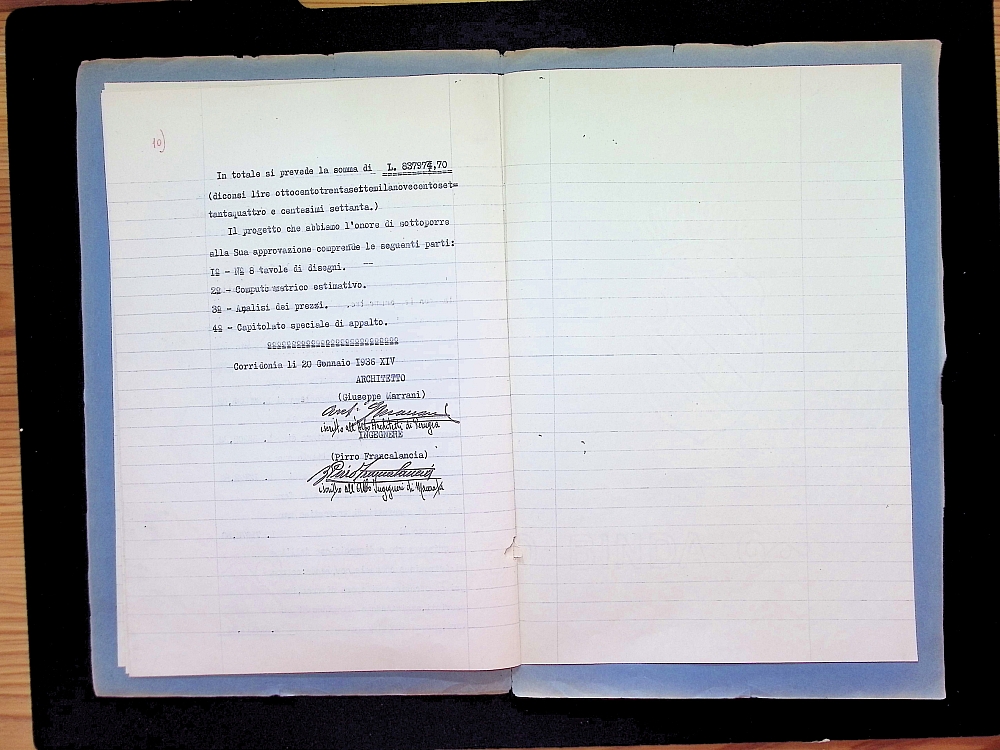 10)
In totale si prevede la somma di L. 837974,70
(diconsi lire ottocentotrentasettemilanovecentoset=
tantaquattro e centesimi settanta.)
Il progetto che abbiamo l'onore di sottoporre
alla Sua approvazione comprende le seguenti parti:
Iº - Nº 8 tavole di disegni.
2º - Computo metrico estimativo.
3º - Analisi dei prezzi.
4º - Capitolato speciale di appalto.
Corridonia li 20 Gennaio I936 XIV
ARCHITETTO
(Giuseppe Marrani)
iscritto all'Albo Architetti di Perugia
INGEGNERE
(Pirro Francalancia)
Pirro Francalancia
iscritto all'Albo Ingegneri di Macerata